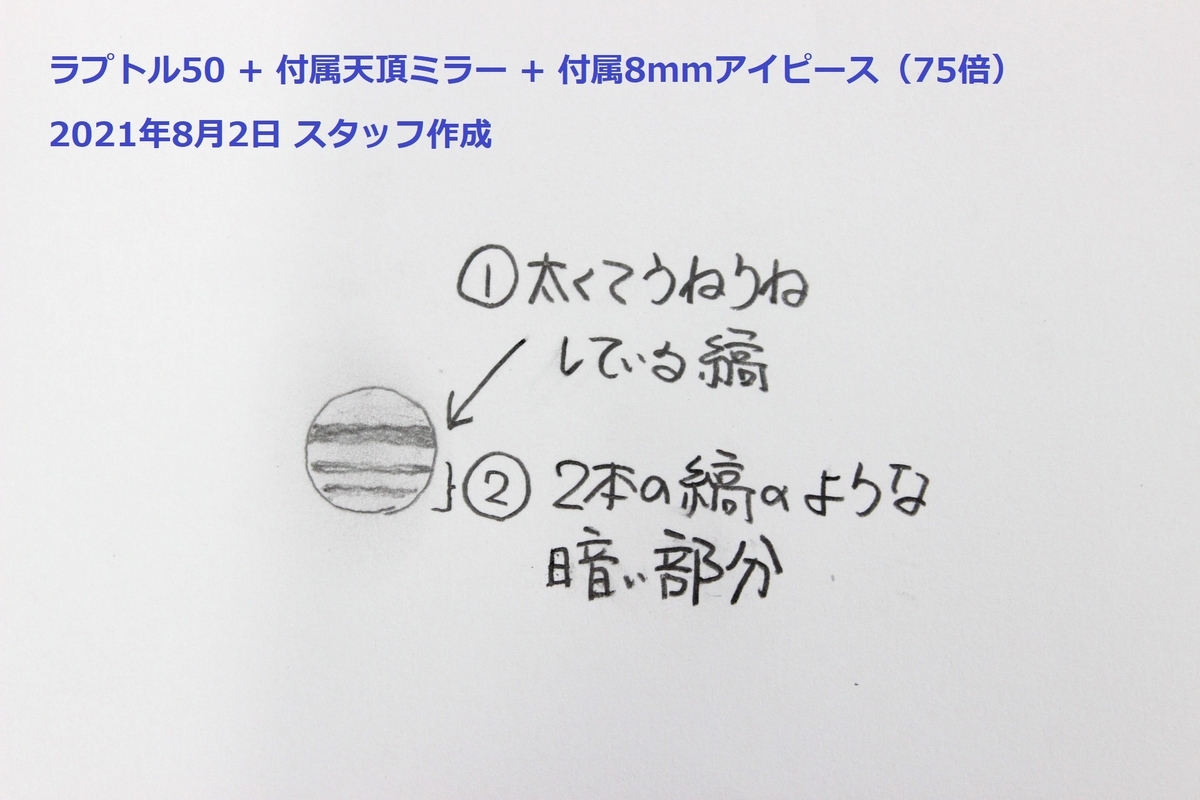 ラプトル50 + 付属天頂ミラー + 付属8mmアイピース（75倍）
2021年8月2日 スタッフ作成
①太くてうねりね
している縞
② 2本の縞のような
暗い部分